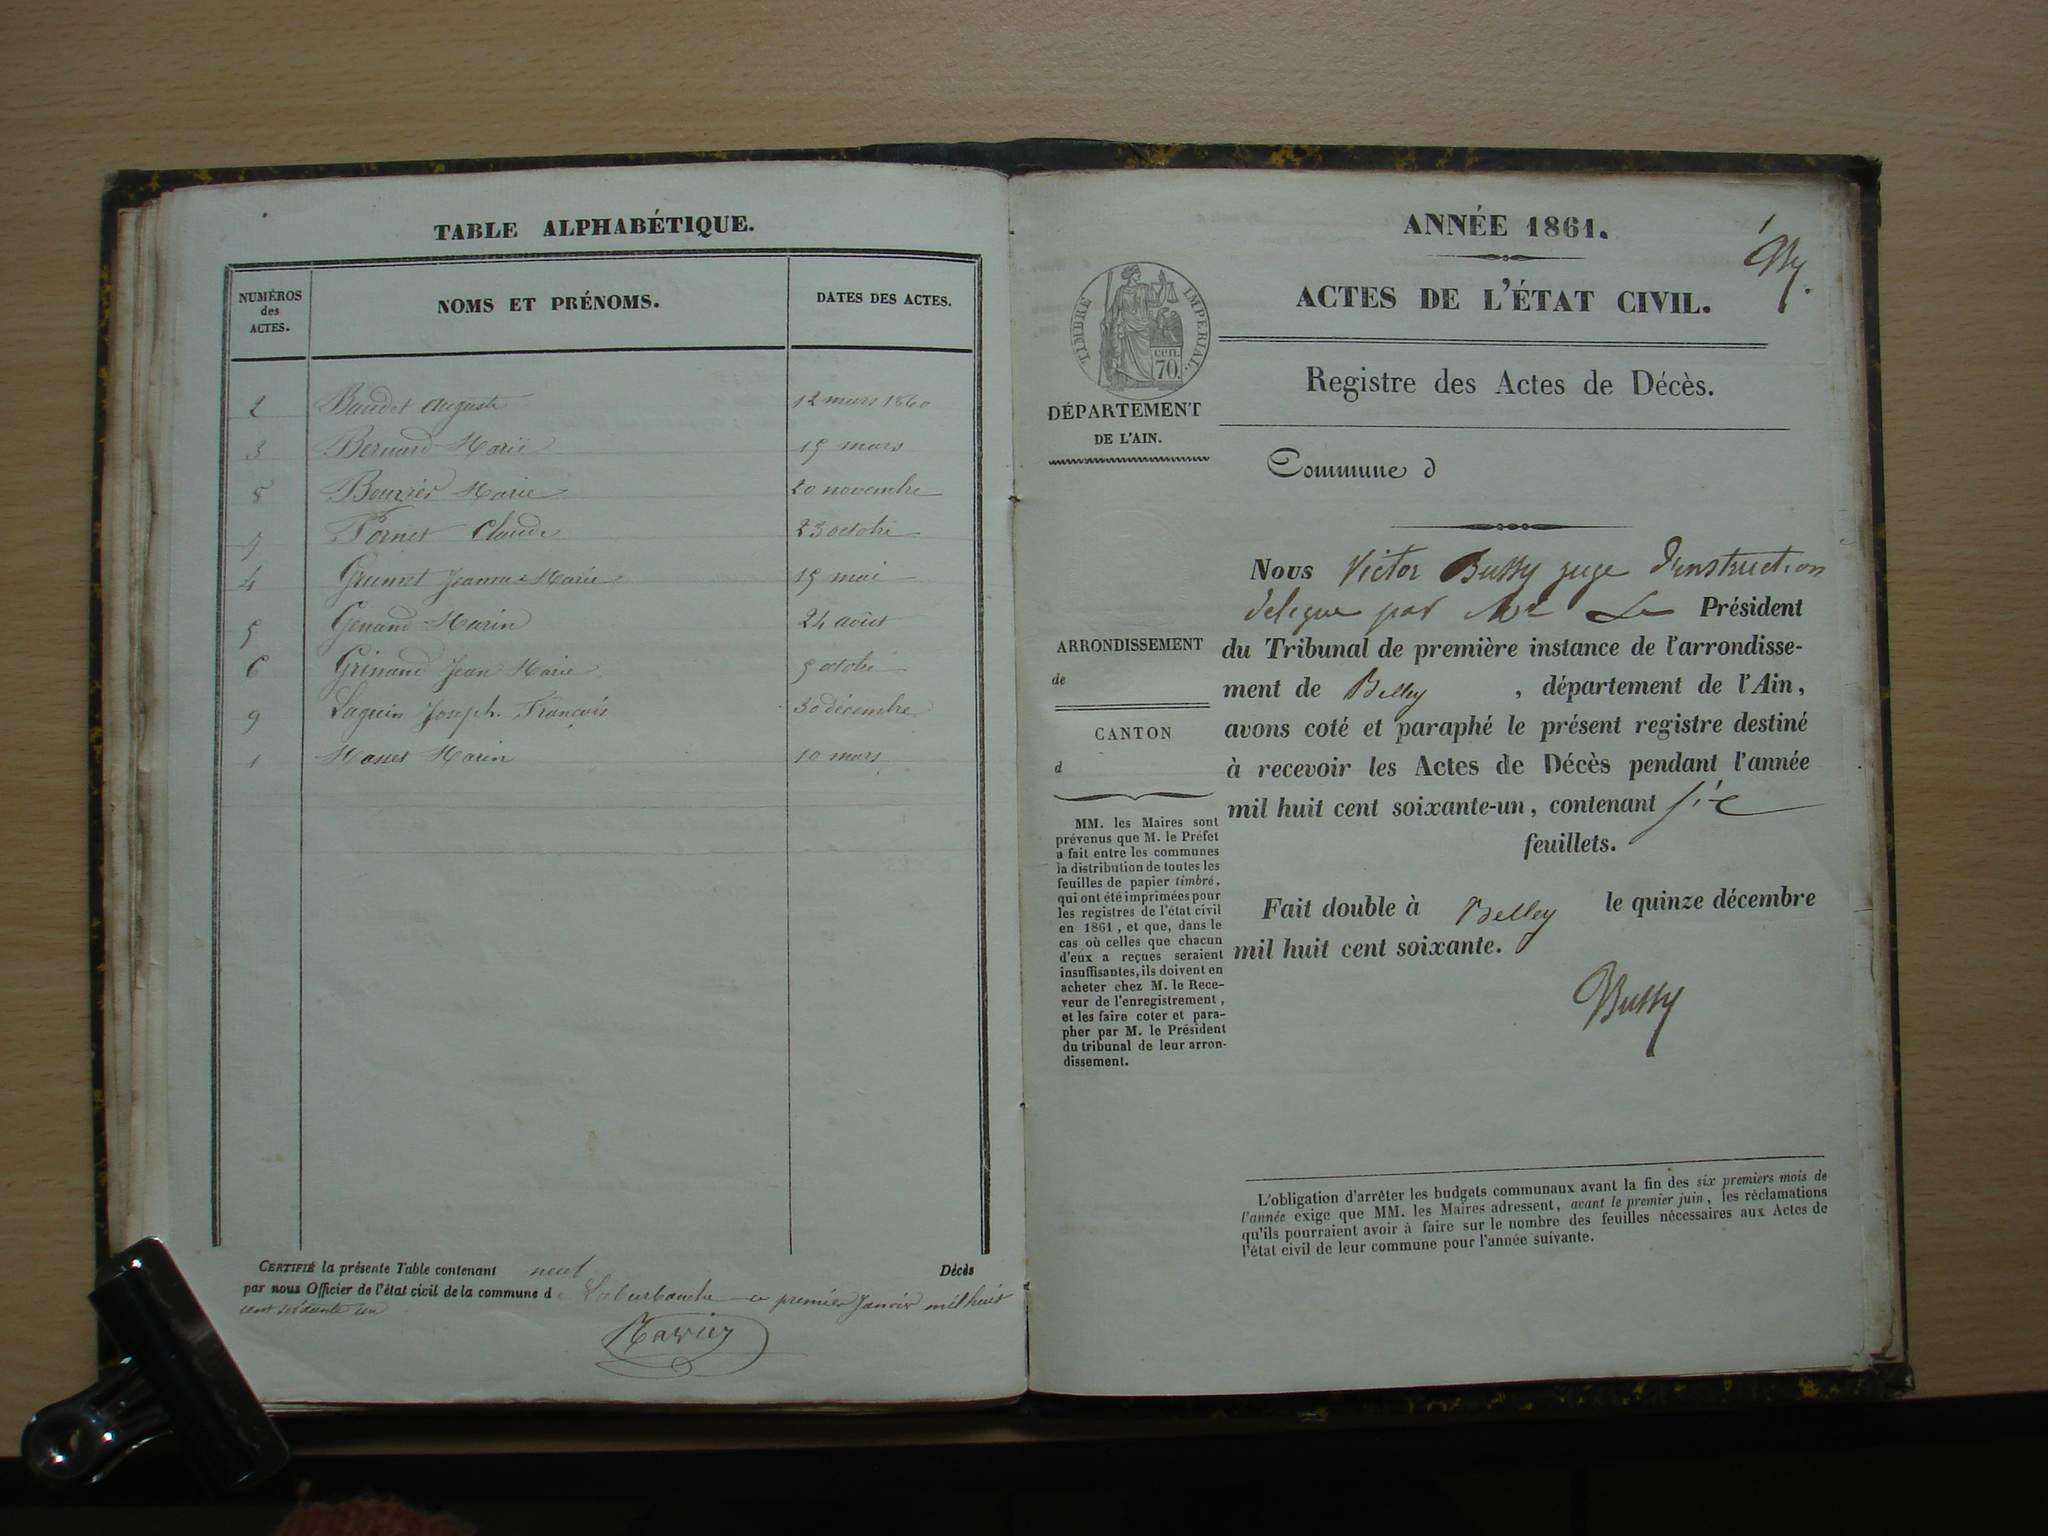 TABLE ALPHABÉTIQUE.
NUMÉROS des ACTES. NOMS ET PRÉNOMS. DATES DES ACTES.
2 Baudet Auguste 12 mars 1860
3 Bernard Marie 15 mars
8 Marie 20 novembre
7 Fornet Claude 23 octobre
4 Jeanne Marie 15 mai
5 Genand Marin 24 août
6 Grinand Jean Marie 5 octobre
9 Laguin Joseph François 30 décembre
1 Masset Marin 10 mars
CERTIFIÉ la présente Table contenant neuf Décès
par nous Officier de l'état civil de la commune de Laburbanche ce premier Janvier mil huit
cent soixante un
ANNÉE 1861.
1
ACTES DE L'ÉTAT CIVIL.
TIMBRE IMPÉRIAL.
cen.
70.
Registre des Actes de Décès.
DÉPARTEMENT
DE L'AIN.
Commune d
ARRONDISSEMENT
de
CANTON
d
MM. les Maires sont
prévenus que M. le Préfet
a fait entre les communes
la distribution de toutes les
feuilles de papier timbré,
qui ont été imprimées pour
les registres de l'état civil
en 1861, et que, dans le
cas où celles que chacun
d'eux a reçues seraient
insuffisantes, ils doivent en
acheter chez M. le Rece-
veur de l'enregistrement,
et les faire coter et para-
pher par M. le Président
du tribunal de leur arron-
dissement.
Nous Victor Bussy juge d'instruction
delegue par Mr Le Président
du Tribunal de première instance de l'arrondisse-
ment de Belley , département de l'Ain,
avons coté et paraphé le présent registre destiné
à recevoir les Actes de Décès pendant l'année
mil huit cent soixante-un, contenant six
feuillets.
Fait double à Belley le quinze décembre
mil huit cent soixante.
Bussy
L'obligation d'arrêter les budgets communaux avant la fin des six premiers mois de
l'année exige que MM. les Maires adressent, avant le premier juin, les réclamations
qu'ils pourraient avoir à faire sur le nombre des feuilles nécessaires aux Actes de
l'état civil de leur commune pour l'année suivante.